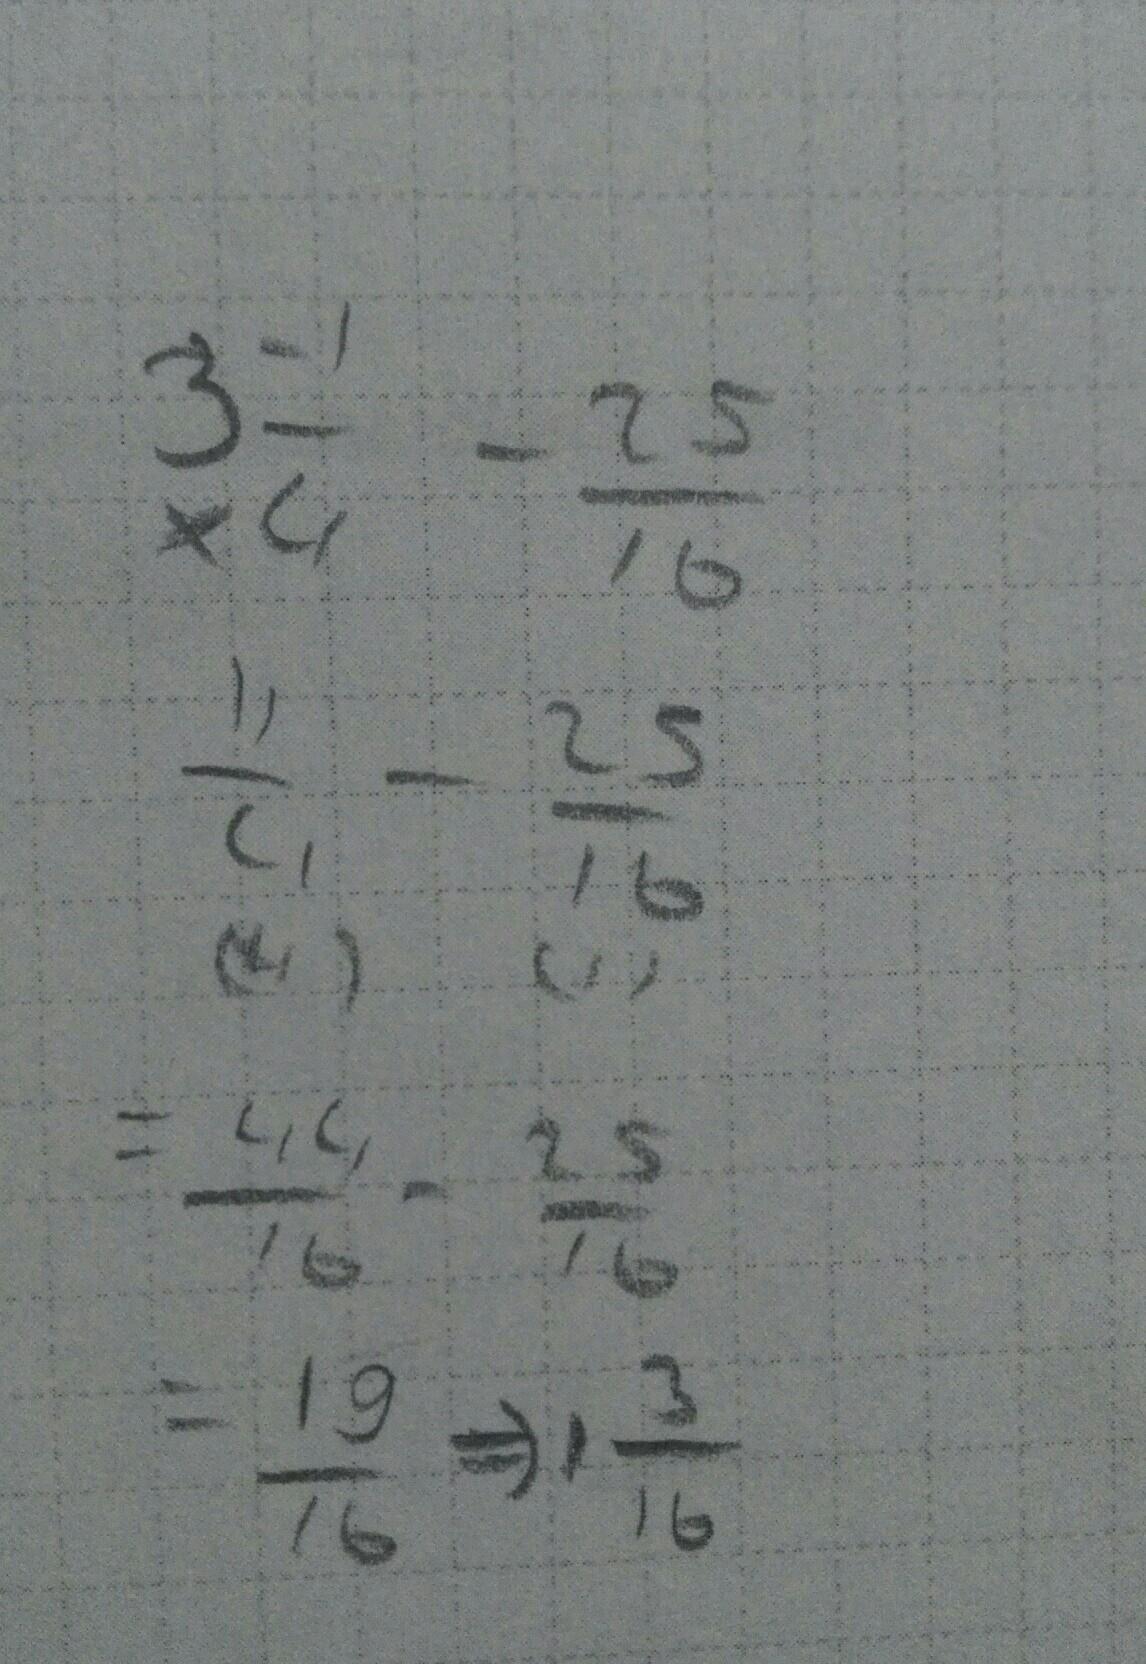 3 -1/4 - 25/16
×
11/4 - 25/16
(4) (1)
= 44/16 - 25/16
= 19/16 ⇒ 1 3/16